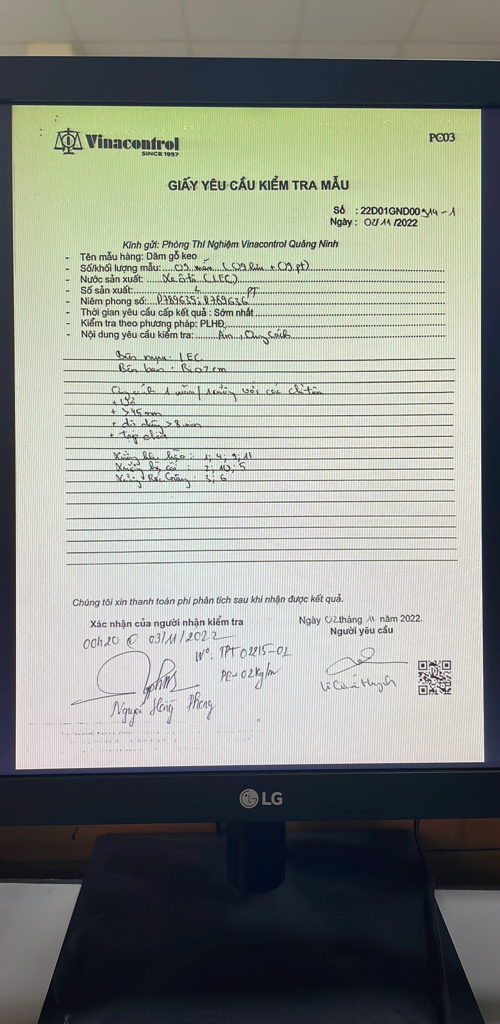 Vinacontrol
SINCE 1957
PC03
GIẤY YÊU CẦU KIỂM TRA MẪU
Số : 22D01GND00914-1
Ngày : 02/11/2022
Kính gửi: Phòng Thí Nghiệm Vinacontrol Quảng Ninh
- Tên mẫu hàng: Dăm gỗ keo
- Số/khối lượng mẫu: 09 (09 + 09 pt)
- Nước sản xuất: (LEC)
- Số sản xuất: PT
- Niêm phong số: 0789635; 0789636
- Thời gian yêu cầu cấp kết quả : Sớm nhất
- Kiểm tra theo phương pháp: PLHĐ
- Nội dung yêu cầu kiểm tra: Ẩm, Quy cách
Bên mua: IEC
Bên bán:
Quy cách 1 mẫu/1 xưởng với các chỉ tiêu
+ >45 mm
+ >8 mm
+ tạp chất
: 1; 4; 9; 11
: 2; 10; 5
: 3; 6
Chúng tôi xin thanh toán phí phân tích sau khi nhận được kết quả.
Xác nhận của người nhận kiểm tra
Ngày 02 tháng 11 năm 2022.
Người yêu cầu
00h20 @ 03/11/2022
Nº. TPT 02215-02
PE-02kg/m
Nguyễn Hồng Phong
LG